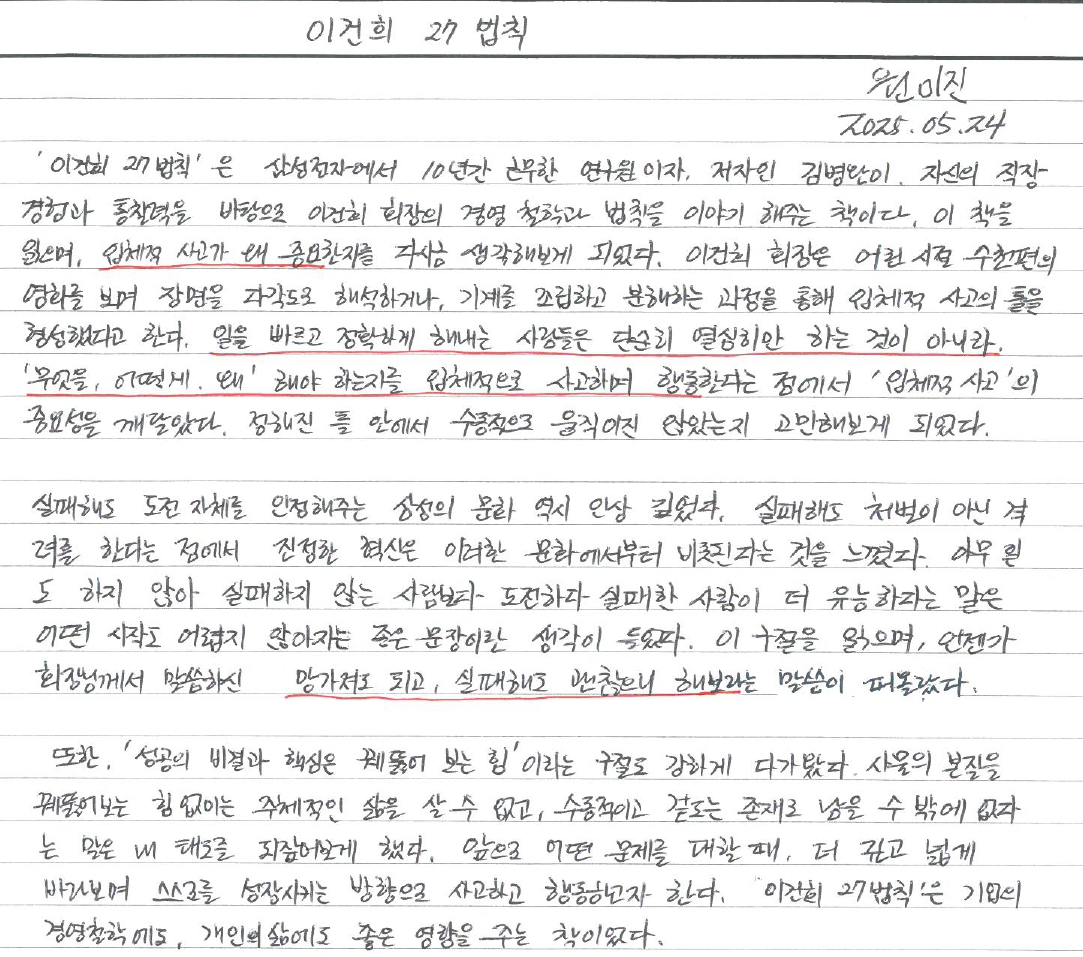 이건희 27 법칙
원미진
2025.05.24
'이건희 27법칙'은 삼성전자에서 10년간 근무한 연구원이자, 저자인 김병완이, 자신의 직장
경험과 통찰력을 바탕으로 이건희 회장의 경영 철학과 법칙을 이야기 해주는 책이다. 이 책을
읽으며, 입체적 사고가 왜 중요한지를 다시금 생각해보게 되었다. 이건희 회장은 어린 시절 수천편의
영화를 보며 장면을 다각도로 해석하거나, 기계를 조립하고 분해하는 과정을 통해 입체적 사고의 틀을
형성했다고 한다. 일을 빠르고 정확하게 해내는 사람들은 단순히 열심히만 하는 것이 아니라,
'무엇을, 어떻게, 왜' 해야 하는지를 입체적으로 사고하며 행동한다는 점에서 '입체적 사고'의
중요성을 깨달았다. 정해진 틀 안에서 수동적으로 움직이진 않았는지 고민해보게 되었다.
실패해도 도전 자체를 인정해주는 삼성의 문화 역시 인상 깊었다. 실패해도 처벌이 아닌 격
려를 한다는 점에서 진정한 혁신은 이러한 문화에서부터 비롯된다는 것을 느꼈다. 아무 일
도 하지 않아 실패하지 않는 사람보다 도전하다 실패한 사람이 더 유능하다는 말은
어떤 시작도 어렵지 않아지는 좋은 문장이란 생각이 들었다. 이 구절을 읽으며, 언젠가
회장님께서 말씀하신 망가져도 되고, 실패해도 괜찮으니 해보라는 말씀이 떠올랐다.
또한, '성공의 비결과 핵심은 꿰뚫어 보는 힘'이라는 구절도 강하게 다가왔다. 사물의 본질을
꿰뚫어보는 힘 없이는 주체적인 삶을 살 수 없고, 수동적이고 겉도는 존재로 남을 수 밖에 없다
는 말은 내 태도를 되짚어보게 했다. 앞으로 어떤 문제를 대할 때, 더 깊고 넓게
바라보며 스스로를 성장시키는 방향으로 사고하고 행동하고자 한다. '이건희 27법칙'은 기업의
경영철학에도, 개인의 삶에도 좋은 영향을 주는 책이었다.